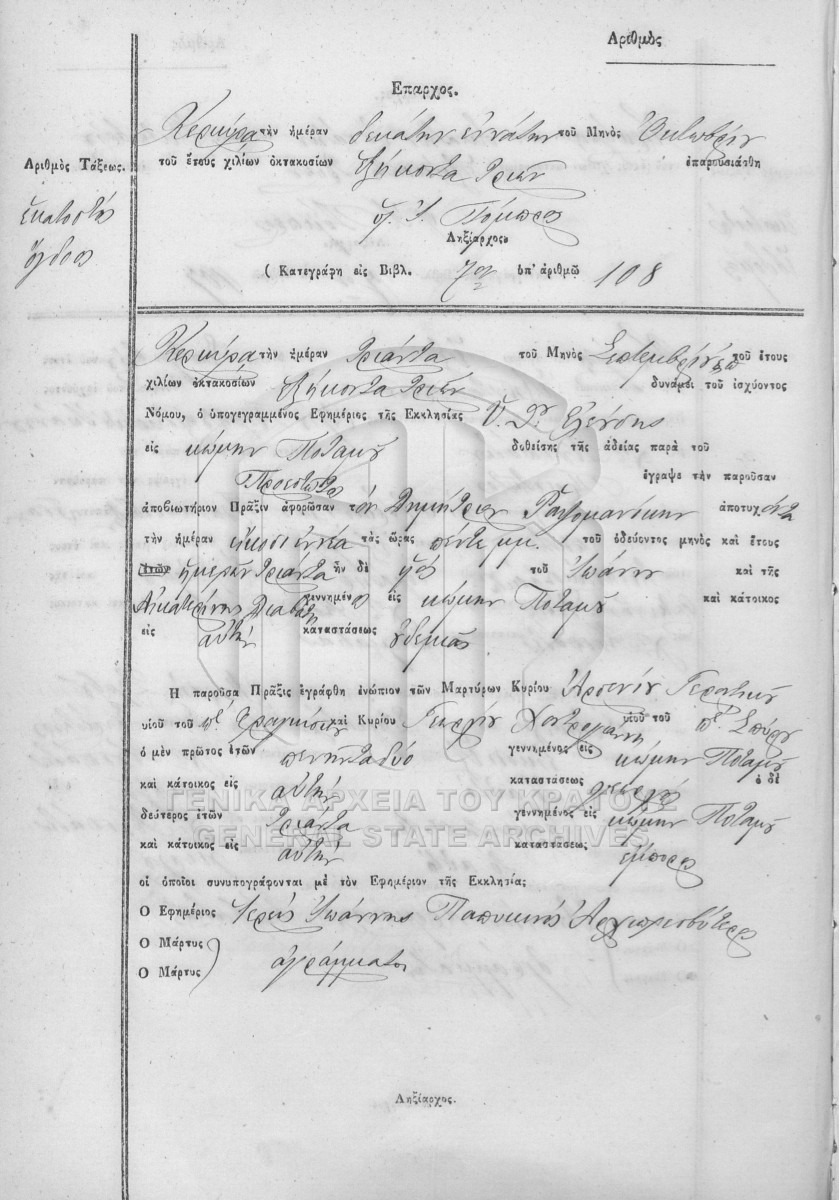 Αριθμὸς
Επαρχος.
Κερκύρα τὴν ἡμέραν δεκάτην εννάτην τοῦ Μηνὸς Οκτωβρίου
Αριθμὸς Τάξεως.
τοῦ ἔτους χιλίων ὀκτακοσίων ἑξήκοντα τριῶν ἐπαρουσιάσθη
ἑκατοστὴ
ὄγδοη
Ληξίαρχος
( Κατεγράφη εἰς Βιβλ. 7ον ὑπ' ἀριθμῶ 108
Κερκύρα τὴν ἡμέραν τριάντα τοῦ Μηνὸς Σεπτεμβρίου τοῦ ἔτους
χιλίων ὀκτακοσίων ἑξήκοντα τριῶν δυνάμει τοῦ ἰσχύοντος
Νόμου, ὁ ὑπογεγραμμένος Εφημέριος τῆς Εκκλησίας
εἰς κώμην Ποταμοῦ δοθείσης τῆς ἀδείας παρὰ τοῦ
Προεστῶτος ἔγραψε τὴν παροῦσαν
ἀποβιωτήριον Πρᾶξιν ἀφορῶσαν τὸν Δημήτριον ἀποτυχόντα
τὴν ἡμέραν εἴκοσι ἐννέα τὰς ὥρας πέντε μμ. τοῦ ὁδεύοντος μηνὸς καὶ ἔτους
ἐτῶν ἡμερῶν τριάντα ἦν δὲ υἱὸς τοῦ Ιωάννου καὶ τῆς
Αἰκατερίνης γεννημένος εἰς κώμην Ποταμοῦ καὶ κάτοικος
εἰς αὐτὴν καταστάσεως οὐδεμιᾶς
Η παροῦσα Πρᾶξις ἐγράφθη ἐνώπιον τῶν Μαρτύρων Κυρίου Αρσενίου
υἱοῦ τοῦ καὶ Κυρίου Γεωργίου υἱοῦ τοῦ πτ. Σπύρου
ὁ μὲν πρῶτος ἐτῶν πενήντα δύο γεννημένος εἰς κώμην Ποταμοῦ
καὶ κάτοικος εἰς αὐτὴν καταστάσεως γεωργὸς ὁ δὲ
ΓΕΝΙΚΑ ΑΡΧΕΙΑ ΤΟΥ ΚΡΑΤΟΥΣ
δεύτερος ἐτῶν τριάντα γεννημένος εἰς κώμην Ποταμοῦ
GENERAL STATE ARCHIVES
καὶ κάτοικος εἰς αὐτὴν καταστάσεως ἔμπορος
οἱ ὁποῖοι συνυπογράφονται μὲ τὸν Εφημέριον τῆς Εκκλησίας
Ο Εφημέριος Ιερεὺς Ιωάννης
Ο Μάρτυς
Ο Μάρτυς ἀγράμματοι
Ληξίαρχος.